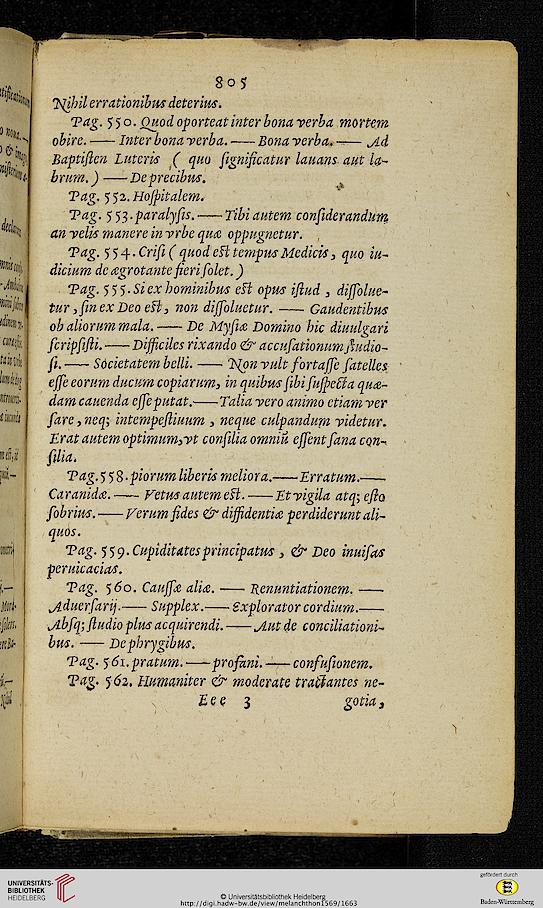 805
Nihil errationibus deterius.
Pag. 550. Quod oporteat inter bona verba mortem
obire. —— Inter bona verba. —— Bona verba. —— Ad
Baptiſten Luteris ( quo ſignificatur lauans aut la-
brum. ) —— De precibus.
Pag. 552. Hoſpitalem.
Pag. 553. paralyſis. —— Tibi autem conſiderandum
an velis manere in vrbe quæ oppugnetur.
Pag. 554. Criſi ( quod eſt tempus Medicis, quo iu-
dicium de ægrotante fieri ſolet. )
Pag. 555. Si ex hominibus eſt opus iſtud , diſſolue-
tur, ſin ex Deo eſt, non diſſoluetur. —— Gaudentibus
ob aliorum mala. —— De Myſiæ Domino hic diuulgari
ſcripſiſti. —— Difficiles rixando & accuſationum ſtudio-
ſi. —— Societatem belli. —— Non vult fortaſſe ſatelles
eſſe eorum ducum copiarum, in quibus ſibi ſuſpecta quæ-
dam cauenda eſſe putat. —— Talia vero animo etiam ver
ſare, neq; intempeſtiuum , neque culpandum videtur.
Erat autem optimum, vt conſilia omniũ eſſent ſana con-
ſilia.
Pag. 558. piorum liberis meliora. —— Erratum. ——
Caranidæ. —— Vetus autem eſt. —— Et vigila atq; eſto
ſobrius. —— Verum fides & diffidentiæ perdiderunt ali-
quos.
Pag. 559. Cupiditates principatus , & Deo inuiſas
peruicacias.
Pag. 560. Cauſſæ aliæ. —— Renuntiationem. ——
Aduerſarij. —— Supplex. —— Explorator cordium. ——
Abſq; ſtudio plus acquirendi. —— Aut de conciliationi-
bus. —— De phrygibus.
Pag. 561. pratum. —— profani. —— confuſionem.
Pag. 562. Humaniter & moderate tractantes ne-
Eee 3 gotia,
UNIVERSITÄTS-
BIBLIOTHEK
HEIDELBERG
© Universitätsbibliothek Heidelberg
http://digi.hadw-bw.de/view/melanchthon1569/1663
gefördert durch
Baden-Württemberg